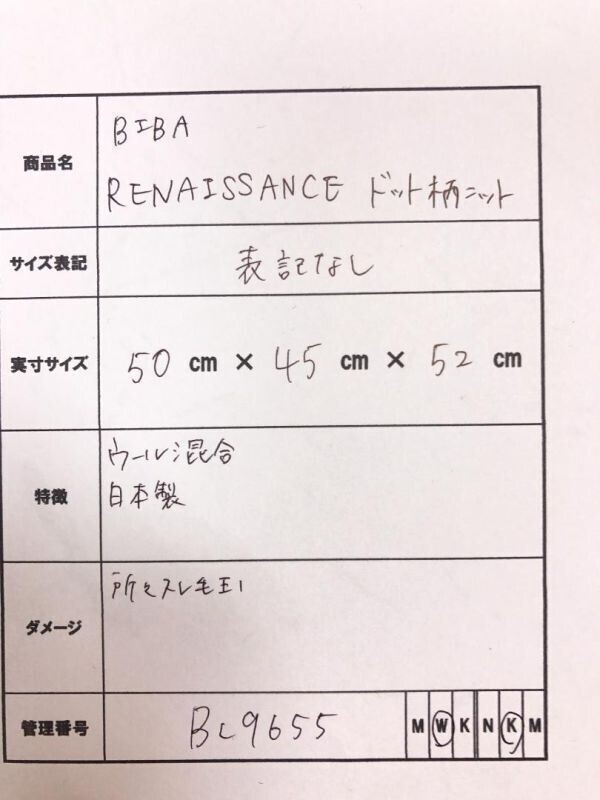 商品名
BIBA
RENAISSANCE ドット柄ニット
サイズ表記
表記なし
実寸サイズ
50 cm × 45 cm × 52 cm
特徴
ウール混合
日本製
ダメージ
所々スレ毛玉
管理番号
BL9655
M W K N K M